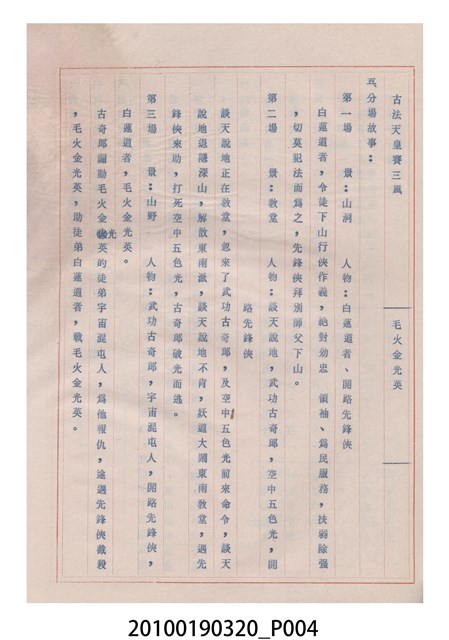 古法天皇賽三風　毛火金光英
五、分場故事：
第一場　景：山洞　人物：白蓮道者、開路先鋒俠
白蓮道者，令徒下山行俠作義，絕對効忠　領袖、為民服務，扶弱除强
，切莫犯法而為之，先鋒俠拜別師父下山。
第二場　景：教堂　人物：談天說地，武功古奇郎，空中五色光，開
路先鋒俠
談天說地正在教堂，忽來了武功古奇郎，及空中五色光前來命令，談天
說地退隱深山，解散東南派，談天說地不肯，妖道大鬧東南教堂，遇先
鋒俠來助，打死空中五色光，古奇郎破光而逃。
第三場　景：山野　人物：武功古奇郎，宇宙混屯人，開路先鋒俠，
白蓮道者，毛火金光英。
古奇郎讒動毛火金光英的徒弟宇宙混屯人，為他報仇，途遇先鋒俠截殺
，毛火金光英，助徒弟白蓮道者，戰毛火金光英。
20100190320_P004